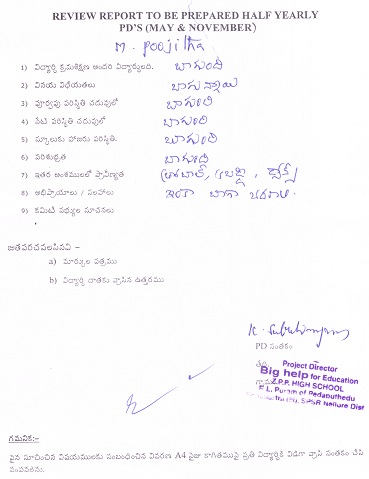 REVIEW REPORT TO BE PREPARED HALF YEARLY
PD'S (MAY & NOVEMBER)
M. Poojitha
1) విద్యార్థి క్రమశిక్షణ అందరి విద్యార్థులది. బాగుంది
2) వినయ విధేయతలు బాగున్నాయి
3) పూర్వపు పరిస్థితి చదువులో బాగుంది
4) నేటి పరిస్థితి చదువులో బాగుంది
5) స్కూలుకు హాజరు పరిస్థితి. బాగుంది
6) పరిశుభ్రత బాగుంది
7) ఇతర అంశములలో ప్రావీణ్యత
8) అభిప్రాయాలు / సలహాలు ఇంకా బాగా చదవాలి.
9) కమిటీ సభ్యుల సూచనలు
జతపరచవలసినవి –
a) మార్కుల పత్రము
b) విద్యార్థి దాతకు వ్రాసిన ఉత్తరము
PD సంతకం
Project Director
Big help for Education
Z.P.P. HIGH SCHOOL
L. Puram of Pedaputhedu
SPSR Nellore Dist
గమనిక:-
పైన సూచించిన విషయములకు సంబంధించిన వివరణ A4 సైజు కాగితముపై ప్రతి విద్యార్థికి విడిగా వ్రాసి సంతకం చేసి
పంపవలెను.